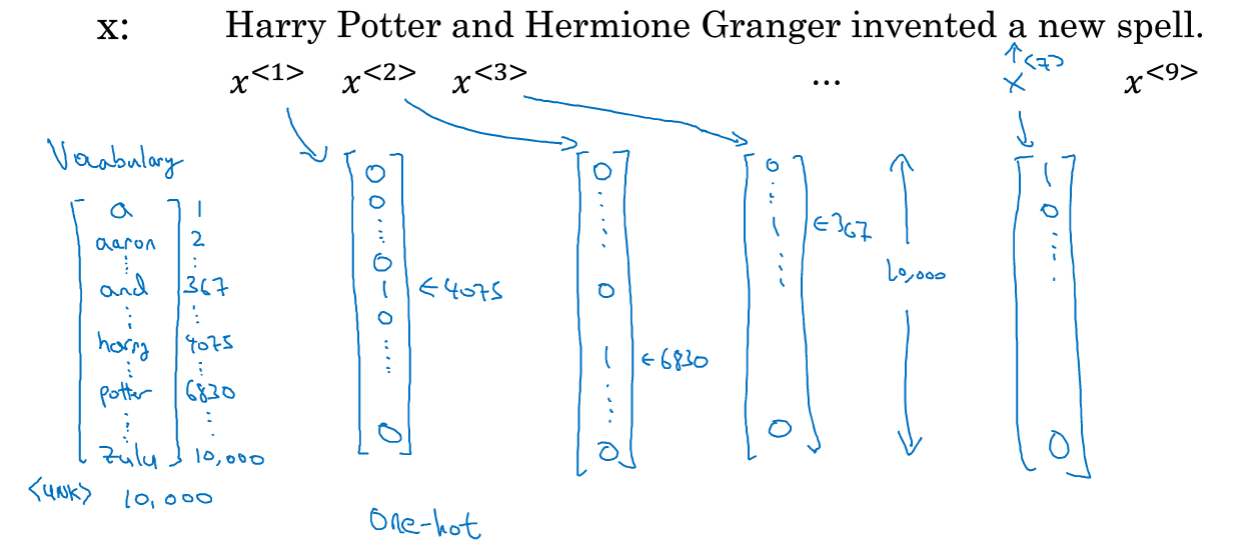 x: Harry Potter and Hermione Granger invented a new spell.
x<1> x<2> x<3> ... x<7> x<9>
Vocabulary
a 1
aaron 2
and 367
harry 4075
potter 6830
zulu 10,000
<UNK> 10,000
0
0
0
1 ←4075
0
0
0
0
1 ←6830
0
0
1 ←367
0
10,000
1
0
0
One-hot